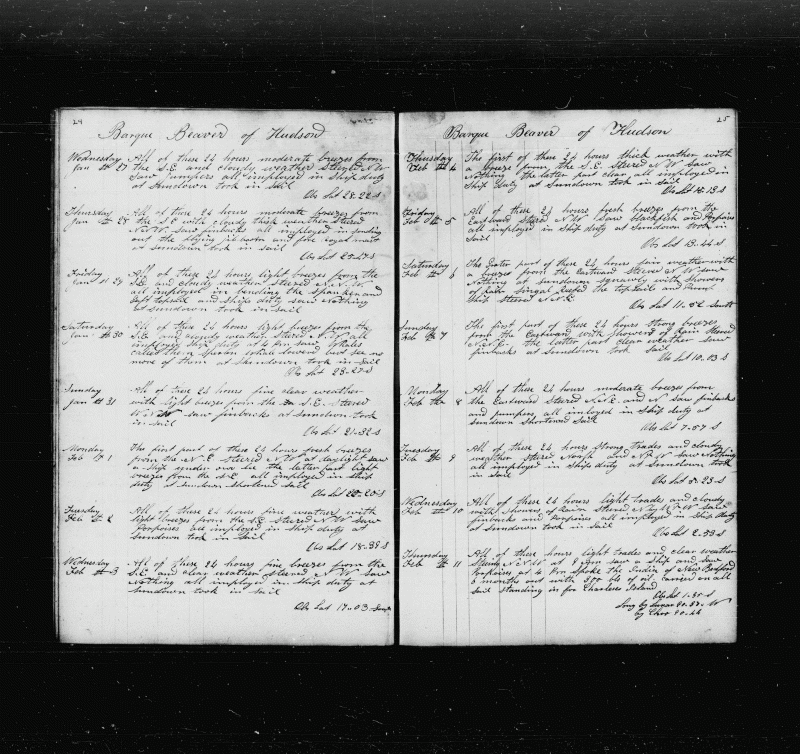 24
Barque Beaver of Hudson
Wednesday All of these 24 hours moderate breezes from
Jan 27 the S.E. and cloudy weather Stered N W
Saw jumpers all imployed in Ship duty
at Sundown took in Sail
Obs Lat 28.22 S
Thursday All of these 24 hours moderate breezes from
Jan 28 the S.E. with cloudy thick weather Stered
N.W. Saw finbacks all imployed in sending
out the flying jib boom and fore royal mast
at Sundown took in Sail
Obs Lat
Friday All of these 24 hours light breezes from the
Jan 29 S.E. and cloudy weather Stered N.N.W
all employed in bending the Spanker and
Gaft topsail and Ships duty saw Nothing
at Sundown took in Sail
Saturday All of these 24 hours light breezes from the
Jan 30 S.E. and cloudy weather Stered N.W. all
imployed Ships duty at 4 pm saw Whales
called them Sperm Whale lowerd but see no
more of them at Sundown took in Sail
Obs Lat 23.27 S
Sunday All of these 24 hours fine clear weather
Jan 31 with light breezes from the S.E. Stered
W.N.W saw finbacks at Sundown took
in Sail
Obs Lat 21.32 S
Monday The first part of these 24 hours fresh breezes
Feb 1 from the N.E. Stered N.W. at daylight saw
a Ship under our lee the latter part light
breezes from the S.E. all imployed in Ship
duty at Sundown Shortend Sail
Obs Lat 20.20 S
Tuesday All of these 24 hours fine weather with
Feb 2 light breezes from the S.E Stered N W Saw
Porpoises all imployed in Ship duty at
Sundown took in Sail
Obs Lat 18.38 S
Wednesday All of these 24 hours fine breezes from the
Feb 3 S.E. and clear weather Stered N W Saw
Nothing all imployed in Ship duty at
Sundown took in Sail
Obs Lat 17.03 South
25
Barque Beaver of Hudson
Thursday The first of these 24 hours thick weather with
Feb 4 a breeze from the S.E. Stered N W Saw
Nothing the latter part clear all imployed in
Ship Duty at Sundown took in Sail
Obs Lat 15.13 S
Friday All of these 24 hours fresh breezes from the
Feb 5 Eastward Stered N.W Saw blackfish and Porpoises
all imployed in Ship duty at Sundown took in
Sail
Obs Lat 13.44 S
Saturday The first part of these 24 hours fair weather with
Feb 6 a breeze from the Eastward Stered N W saw
Nothing at Sundown squally with showers
of rain reefed the top sails and
Ship Stered N.E
Obs Lat 11.52 South
Sunday The first part of these 24 hours Strong breezes
Feb 7 from the Eastward with Showers of Rain Stered
N.E. the latter part clear weather saw
finbacks at Sundown took in Sail
Obs Lat 10.03 S
Monday All of these 24 hours moderate breezes from
Feb 8 the Eastward Stered N.E. and N saw finbacks
and jumpers all imployed in Ship duty at
Sundown Shortened Sail
Obs Lat 7.57 S
Tuesday All of these 24 hours Strong Trades and cloudy
Feb 9 weather Stered North and N.N.W saw Nothing
all imployed in Ships duty at Sundown took
in Sail
Obs Lat 5.23 S
Wednesday All of these 24 hours light trades and cloudy
Feb 10 with Showers of Rain Stered N by W Saw
finbacks and Porpoises all imployed in Ship duty
at Sundown took in Sail
Obs Lat 2.93 S
Thursday All of these hours light Trades and clear weather
Feb 11 Steering N.N.W at 9 am saw a Ship and saw
Porpoises at 4 Pm spoke the India of New Bedford
6 months out with 200 bls of oil Carrier on all
Sail Standing in for Charleses Island
Obs Lat 1.50 S
Long by Lunar 90.57 W
by Chro 90.44